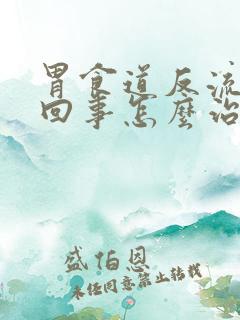 胃食道反流
回事怎麼治
盛伯恩
未经同意禁止转载